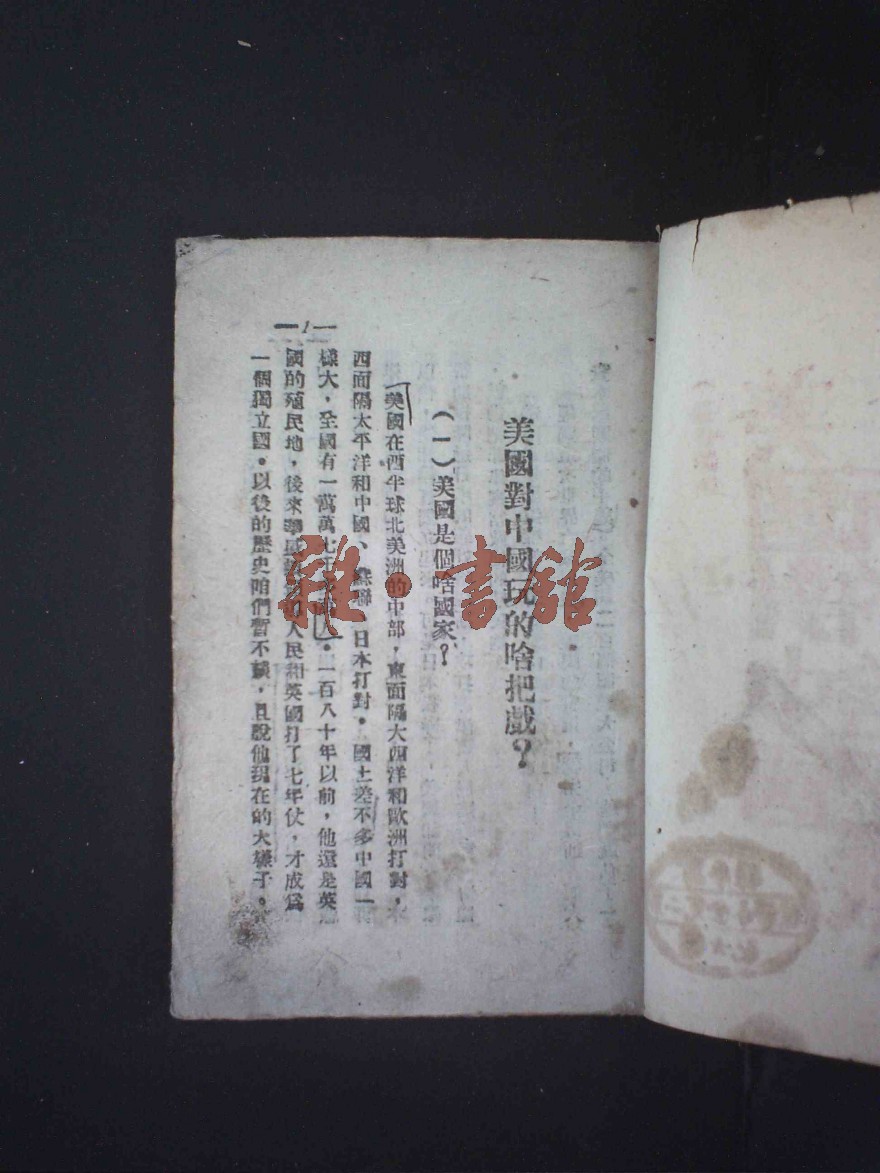 美國對中國玩的啥把戲？
（一）美國是個啥國家？
美國在西半球北美洲的中部，東面隔大西洋和歐洲打對，
西面隔太平洋和中國、蘇聯、日本打對。國土差不多中國一
樣大，全國有一萬萬七千 人。一百八十年以前，他還是英
國的殖民地，後來華盛 人民和英國打了七年仗，才成爲
一個獨立國。以後的歷史咱們暫不談，且說他現在的大樣子。
—1—
雜·書館